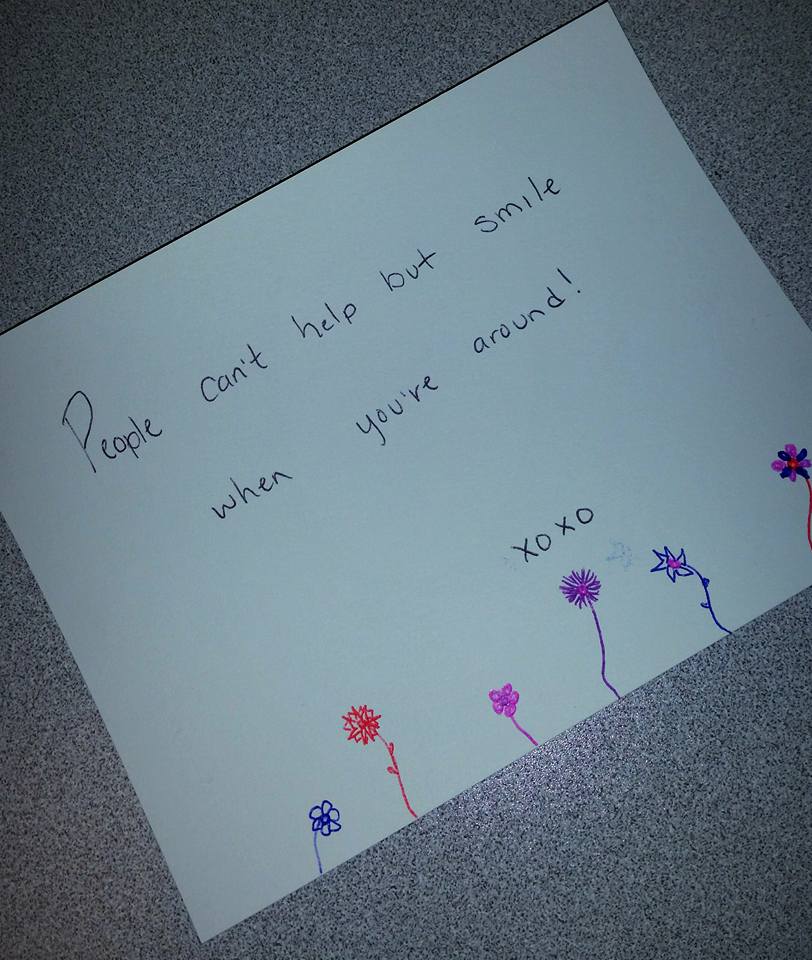 People can't help but smile
when you're around!
xoxo